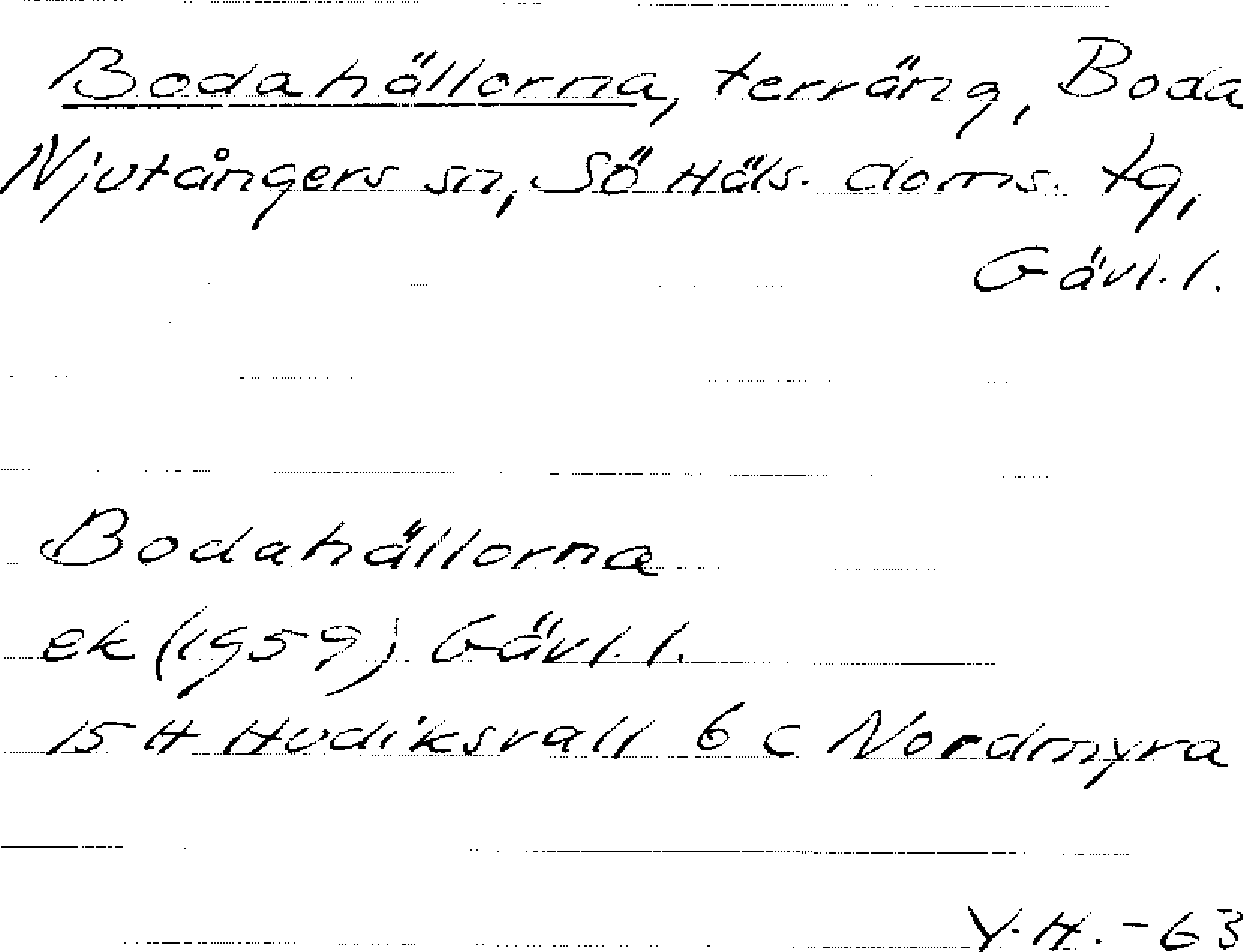 Bodahällorna, terräng, Boda
Njutångers sn, Sö Häls. doms. tg,
Gävl. l.
Bodahällorna
ek (1959) Gävl. l.
15 H Hudiksvall 6 c Nordmyra
Y. H. - 63